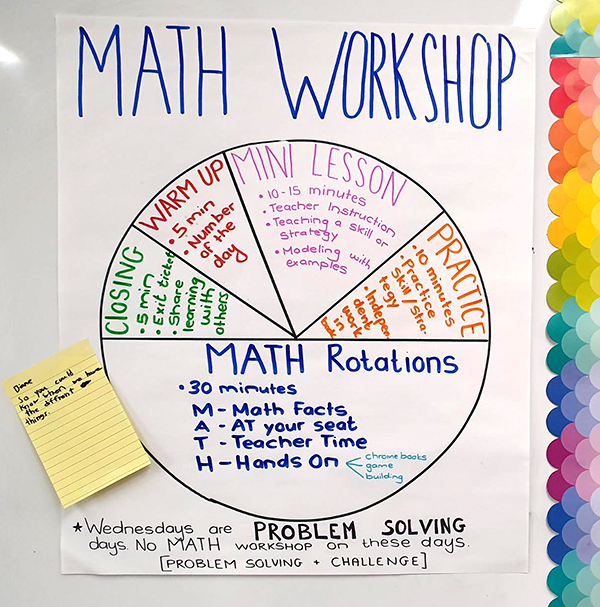 MATH WORKSHOP
CLOSING
• 5 min
• Exit ticket
• Share
learning
with
others
WARM UP
• 5 min
• Number
of the
day
MINI LESSON
• 10-15 minutes
• Teacher Instruction
• Teaching a skill or
strategy
• Modeling with
examples
PRACTICE
• 10 minutes
• Practice
skill/Stra-
tegy
• Indepen
dent
work
in
MATH Rotations
• 30 minutes
M - Math Facts
A - AT your seat
T - Teacher Time
H - Hands On
chromebooks
game
building
So you could
know when we have
the diffrent
things.
★Wednesdays are PROBLEM SOLVING
days. No MATH WORKSHOP on these days.
[PROBLEM SOLVING + CHALLENGE]